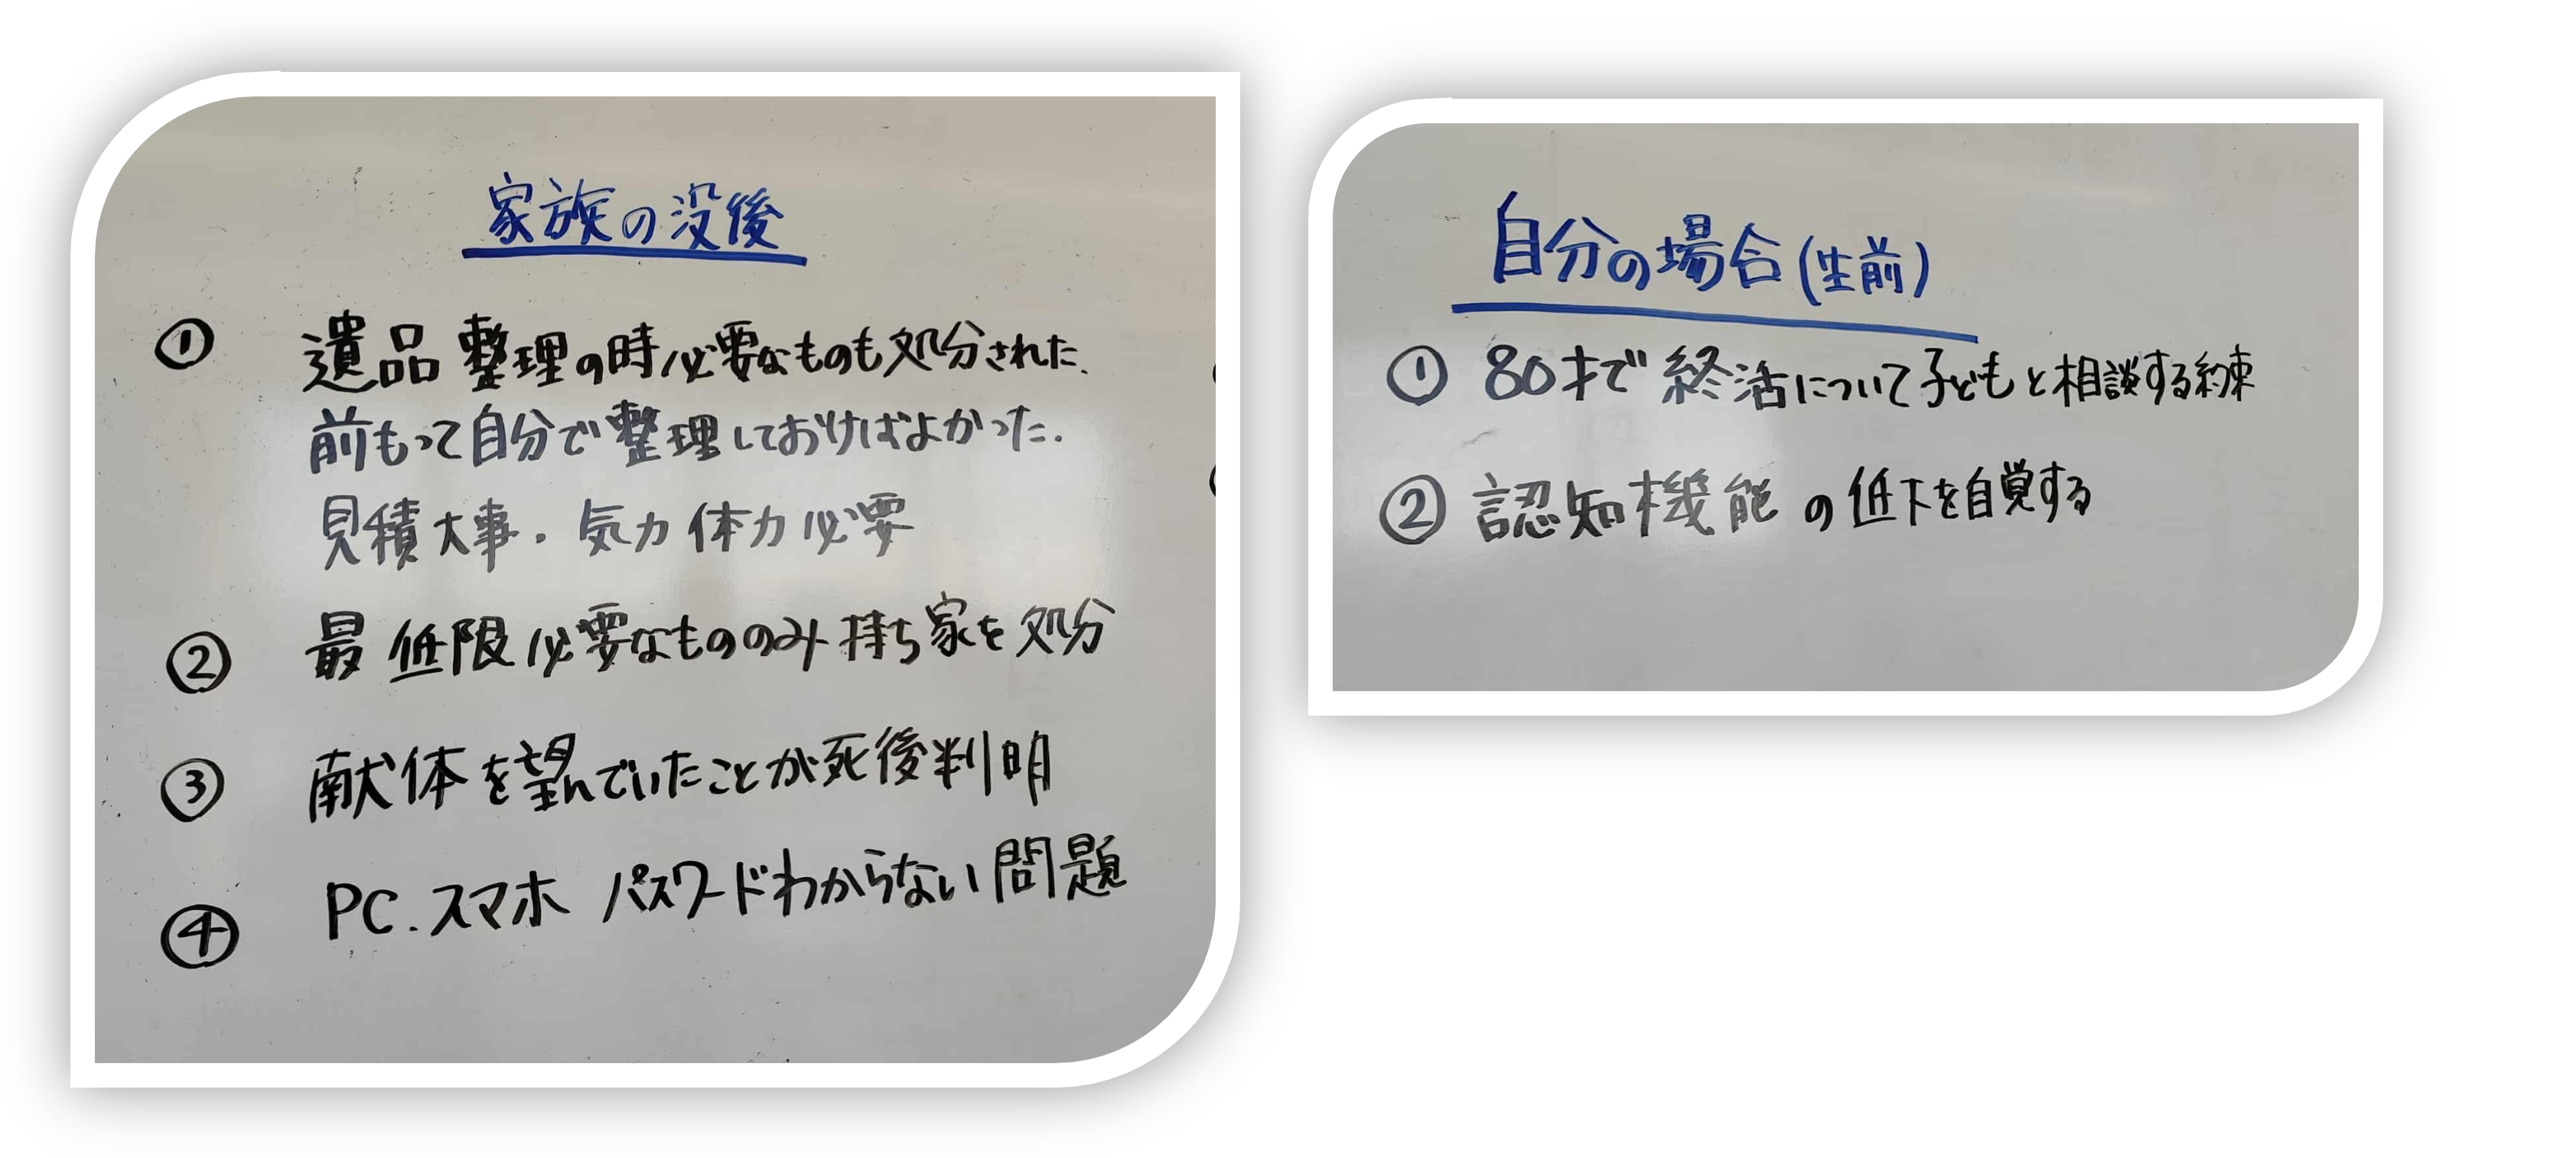 家族の没後
① 遺品整理の時必要なものも処分された.
前もって自分で整理しておけばよかった.
見積大事.気力体力必要
② 最低限必要なもののみ持ち家を処分
③ 献体を望んでいたことが死後判明
④ PC.スマホ パスワードわからない問題
自分の場合(生前)
① 80才で終活について子どもと相談する約束
② 認知機能の低下を自覚する